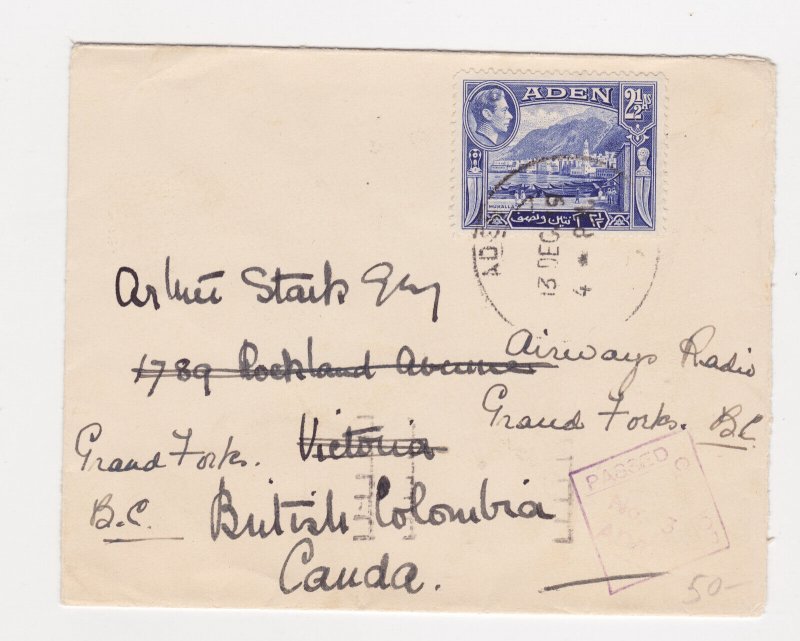 ADEN
2½ AS
MUKALLA
13 DEC
4
Stark Esq
1789 Rockland Avenue
Airways Radio
Grand Forks. B.C.
Grand Forks.
Victoria
B.C.
British Colombia
Canda.
PASSED
50-